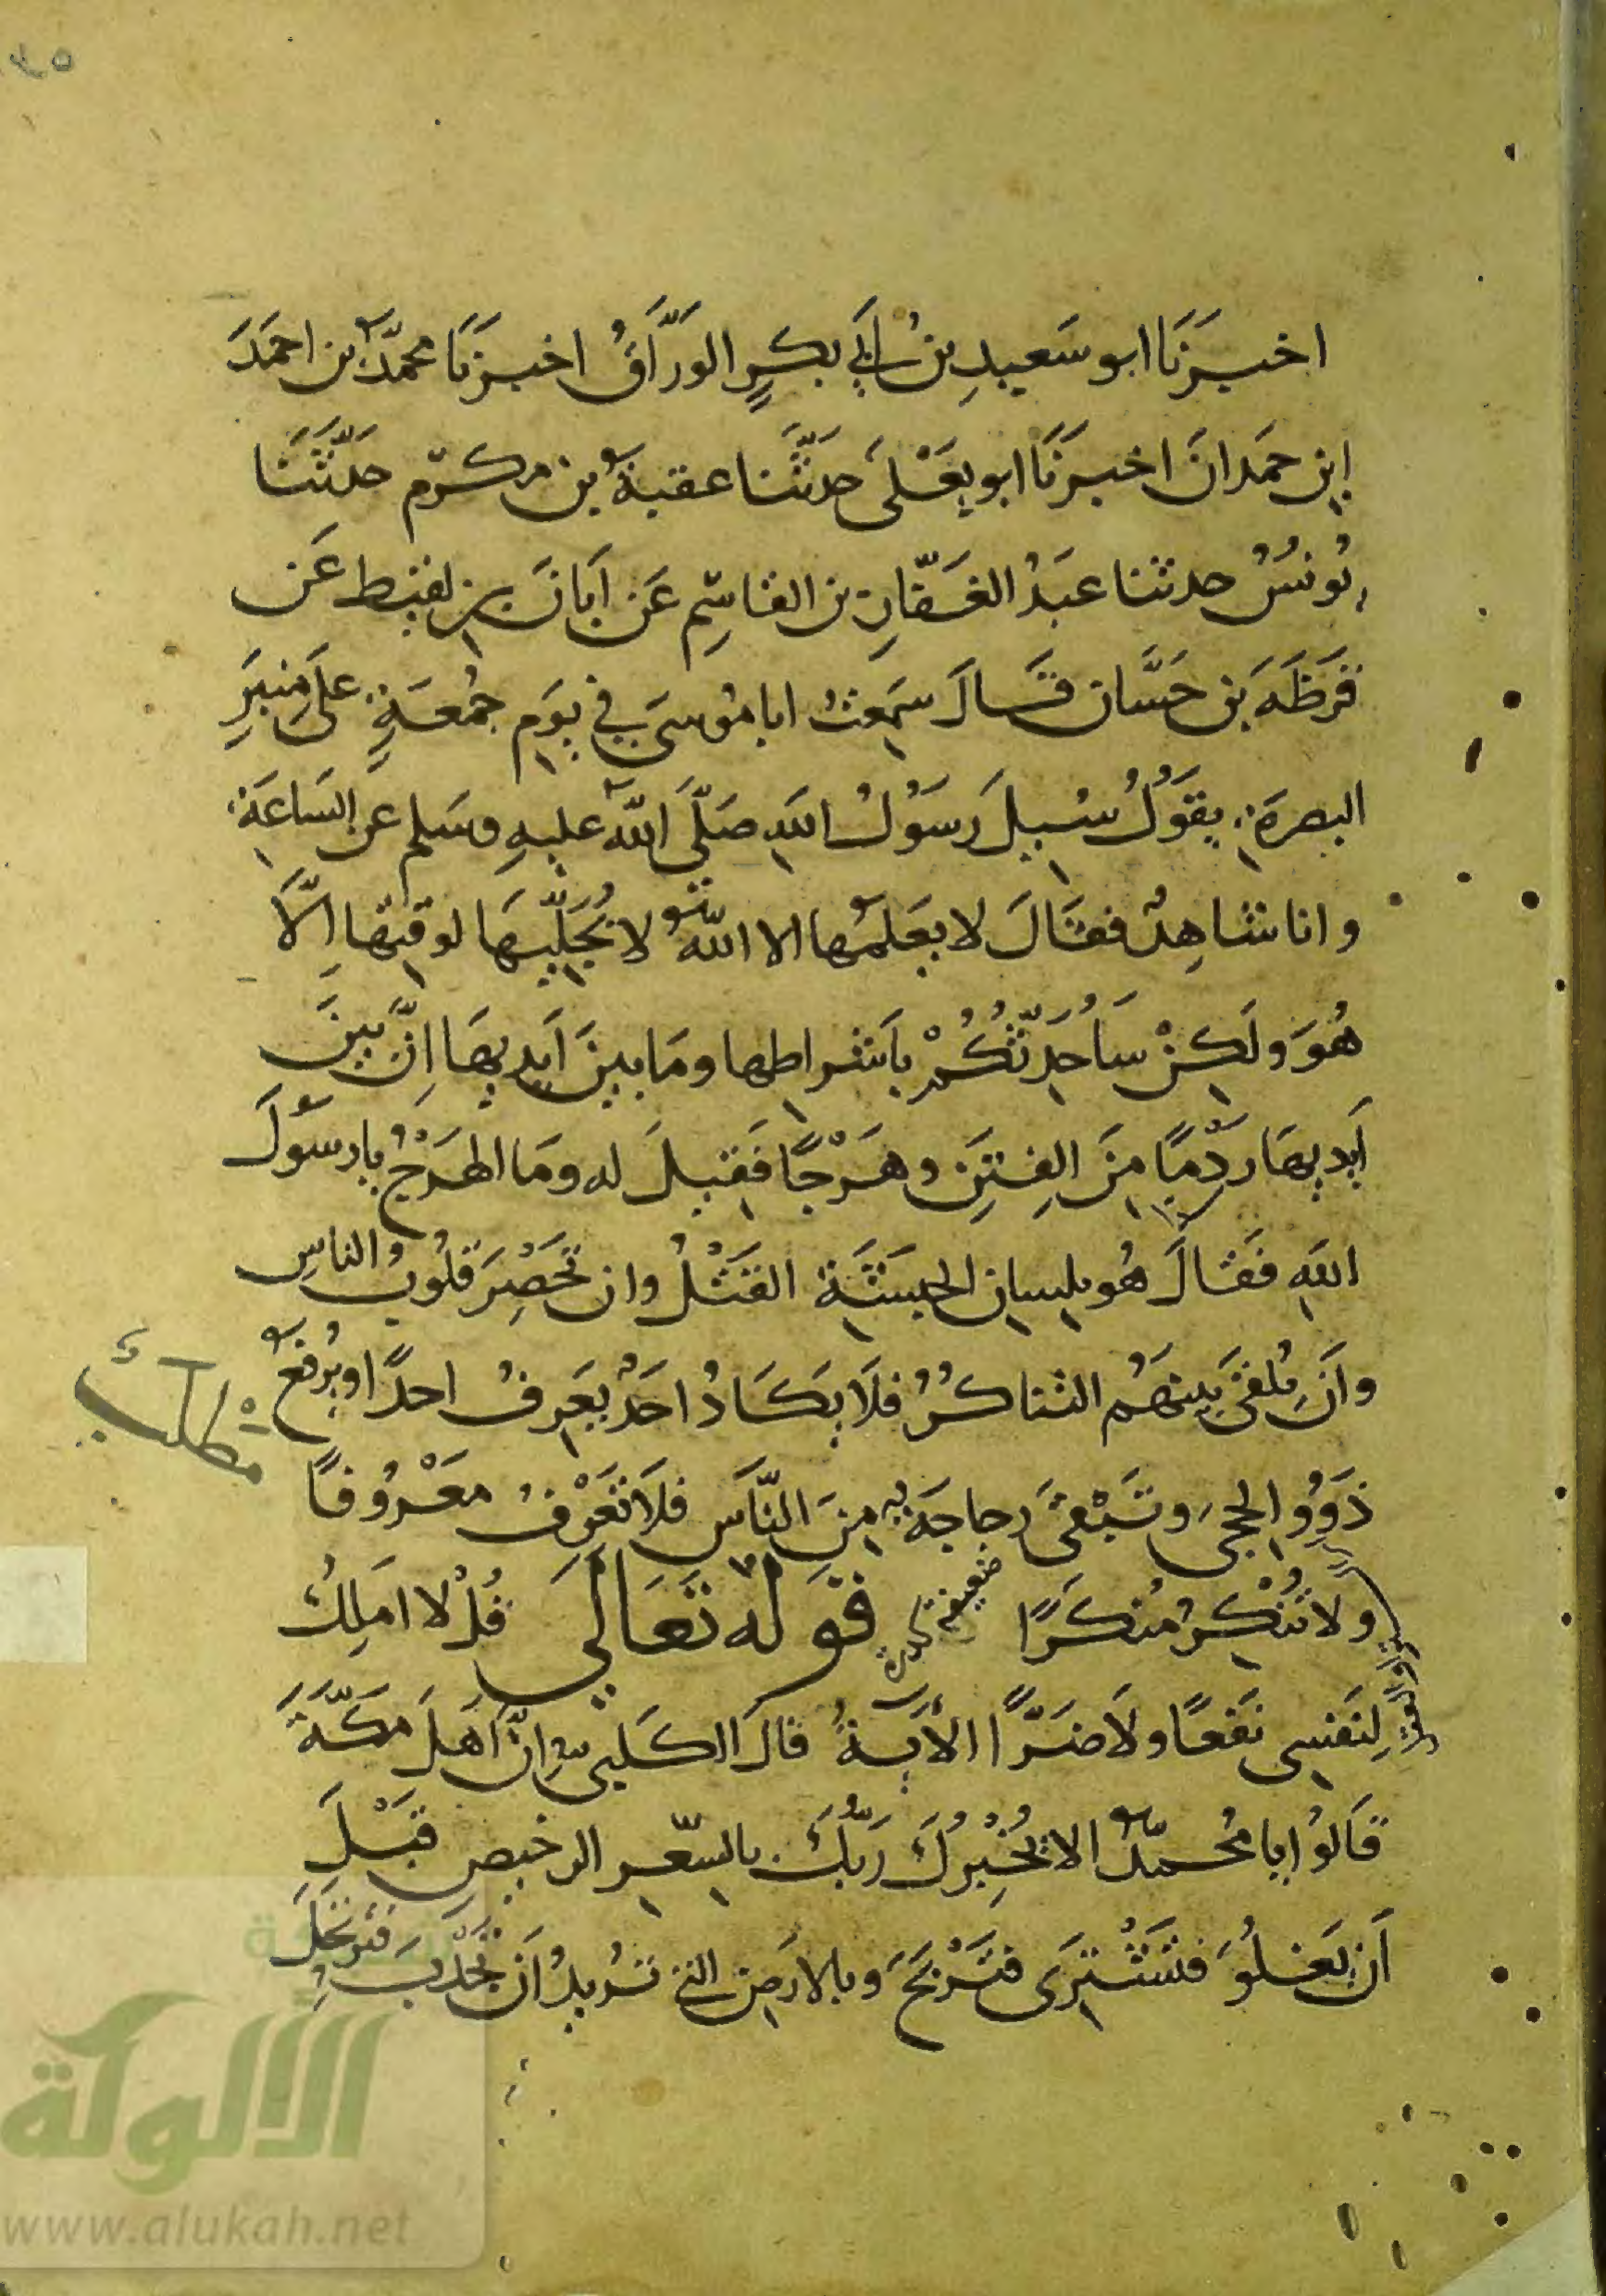 اخبرَنَا ابو سَعيدِ بنُ ابي بكرٍ الورَّاقُ اخبرَنَا محمدُ بن احمَدَ
ابن حمَدانَ اخبرَنَا ابو يعَلَى حدثَّنا عقبة بن مكرّم حدَثَّنَا
يُونسُ حدثنا عَبدُ الغفّارِ بن القاسِم عَن اَبَانَ بن لقيط عَن
قَرَظَهَ بن حَسَّان قَالَ سَمِعتُ ابا مُوسىَ في يوَم جُمعَةٍ على مِنبَرِ
البصرَةِ يقوَلُ سُيلَ رسَوُلُ اللهِ صَلّىَ الله عليهِ وسَلم عن السَاعَةِ
وانا شاهِدٌ فقالَ لا يعَلمُها الا اللهُ لا يُجَلّيهَا لوقتِها اِلّاَ
هُوَ ولَكِنْ سَاُحَدِّثُكُمْ باَشراطِها ومَا بينَ اَيديهَا اِنَّ بينَ
اَيديهَا ردْمًا مِنَ الفِتَنِ وهَرْجًا فَقيلَ له ومَا الهَرْجُ يا رسَوُلَ
اللهِ فَقالَ هُو بلسِانِ الحبَشَةِ القَتْلُ وان تَحْصِرَ قلوُبُ الناسِ
واَن يُلقىَ بينهَمُ التناكرُ فلاَ يكَادُ احَدٌ يعَرِفُ احدًا ويُرفعُ
مطلب
ذَوُو الحِجىَ وتَبْقىَ رجاجَة مِنَ النّاسِ فلاَ تَعْرِفُ معَرُوفًا
ولا تُنْكِرُ مُنكَرًا قوله تعَالي قُلْ لا اَملِكُ
ضعيفة
لِنَفسِى نفَعًا ولاَ ضَرًّا الاَيةُ قالَ الكلبى اِنّ اَهلَ مَكّةَ
قالوُا يا محُمدُ الا يُخْبِرُكَ ربُّكَ بالسّعِر الرخيصِ قَبْلِ
اَن يَغلوُ فتَشْترِى فتَرْبحَ وبالارَضِ التي تُريدُ اَن تُجْدِبَ فترتحلَ
الألوكة
www.alukah.net